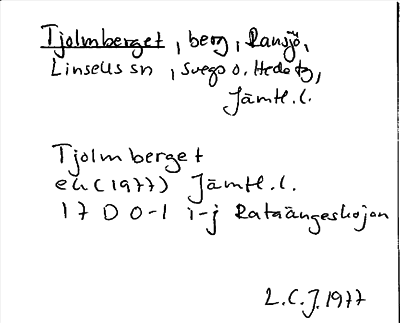 Tjolmberget, berg, Ransjö,
Linsells sn, Svegs o. Hede tg,
Jämtl. l.
Tjolmberget
ek (1977) Jämtl. l.
17 D 0-1 i-j Rataängeskojan
L.C.J. 1977